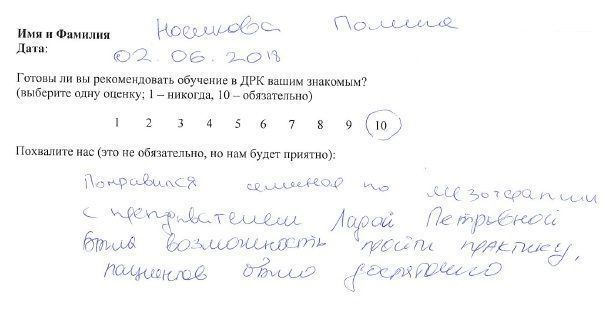 Имя и Фамилия Носикова Полина
Дата: 02.06.2018
Готовы ли вы рекомендовать обучение в ДРК вашим знакомым?
(выберите одну оценку; 1 – никогда, 10 – обязательно)
1 2 3 4 5 6 7 8 9 10
Похвалите нас (это не обязательно, но нам будет приятно):
Понравился семинар по мезотерапии
с преподавателем Ларой Петровной
Была возможность пройти практику,
пациентов было достаточно